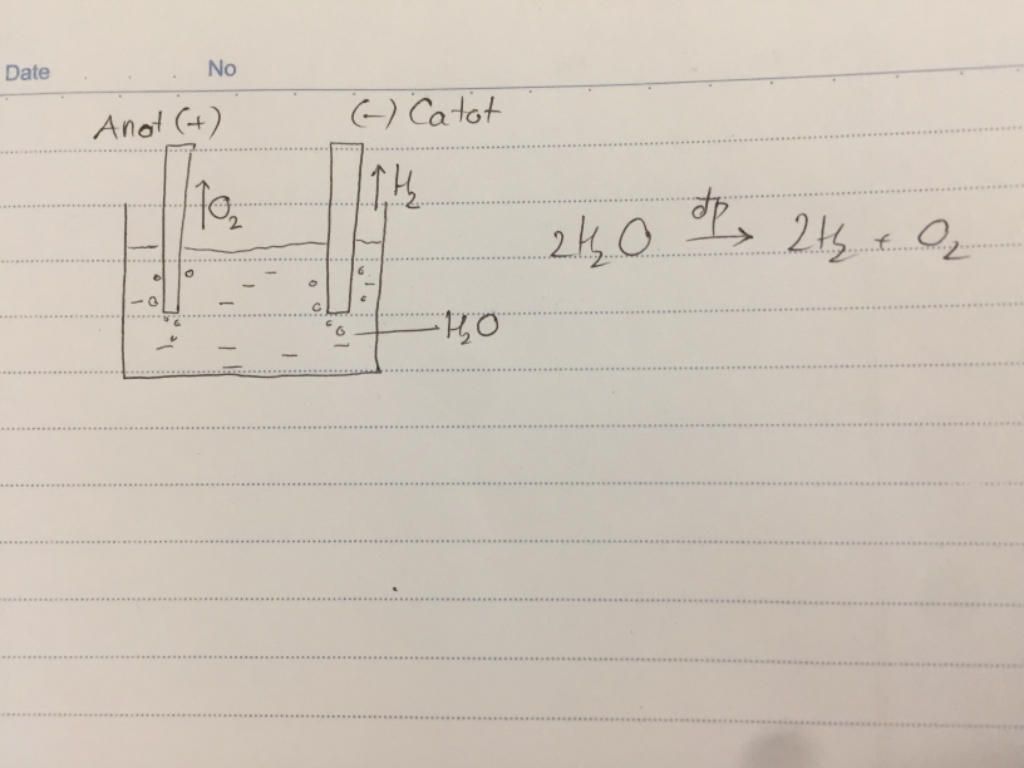 Date No
Anot (+) (-) Catot
↑O₂ ↑H₂
2H₂O dp → 2H₂ + O₂
H₂O